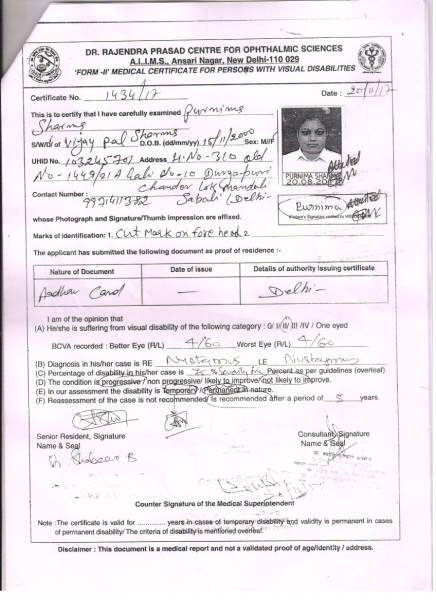 DR. RAJENDRA PRASAD CENTRE FOR OPHTHALMIC SCIENCES
A.I.I.M.S., Ansari Nagar, New Delhi-110 029
'FORM -II' MEDICAL CERTIFICATE FOR PERSONS WITH VISUAL DISABILITIES
Certificate No. 1434/17 Date : 20/11/17
This is to certify that I have carefully examined Purnima
Sharma
s/w/d/o Vijay Pal Sharma D.O.B. (dd/mm/yy) 15/11/2000 Sex: M/F
UHID No. 103245701 Address H.No-310 old
No-1449/21A Gali No-10 Durgapuri
Contact Number : Chander Lok Mandoli
9931411382 Saboli (Delhi-
PURNIMA SHARMA
20.08.20
Attested
Purnima Attested
whose Photograph and Signature/Thumb impression are affixed.
Marks of identification: 1. Cut Mark on fore head 2
The applicant has submitted the following document as proof of residence :-
Nature of Document Date of issue Details of authority issuing certificate
Aadhar Card Delhi-
I am of the opinion that
(A) He/she is suffering from visual disability of the following category : 0/ I/ II/ III /IV / One eyed
BCVA recorded : Better Eye (R/L) 4/60 Worst Eye (R/L) 4/60
(B) Diagnosis in his/her case is RE Nystagmus LE Nystagmus
(C) Percentage of disability in his/her case is 75% Seventy five Percent as per guidelines (overleaf).
(D) The condition is progressive / non progressive/ likely to improve/ not likely to improve.
(E) In our assessment the disability is Temporary / Permanent in nature.
(F) Reassessment of the case is not recommended/ is recommended after a period of 5 years.
Senior Resident, Signature Consultant Signature
Name & Seal Name & Seal
Counter Signature of the Medical Superintendent
Note :The certificate is valid for ............. years in cases of temporary disability and validity is permanent in cases
of permanent disability/ The criteria of disability is mentioned overleaf.
Disclaimer : This document is a medical report and not a validated proof of age/identity / address.